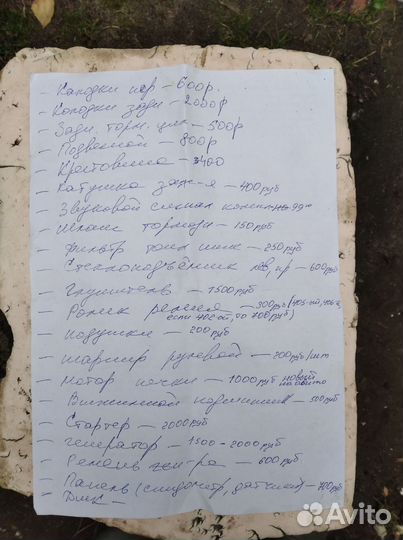 - Колодки пер - 600р.
- Колодки задн - 2000р
- Задн. торм. цил - 500р
- Подвесной - 800р
- Крестовина - 400
- Катушка заж-я - 400руб
- Звуковой сигнал
- Шланг тормозн - 150руб
- Фильтр топл - 250руб
- Стеклоподъёмник лев, пр - 600руб
- Глушитель - 1500руб
- Ролик ремня - 300руб
- подушки - 200руб
- шарнир рулевой - 200руб/шт
- мотор печки - 1000руб новый на авито
- Выжимной подшипник - 500руб
- Стартер - 2000руб
- генератор - 1500-2000руб
- Ремень ген-ра - 600руб
- Панель (спидометр, датчики) - 700руб
- Диск -
Avito